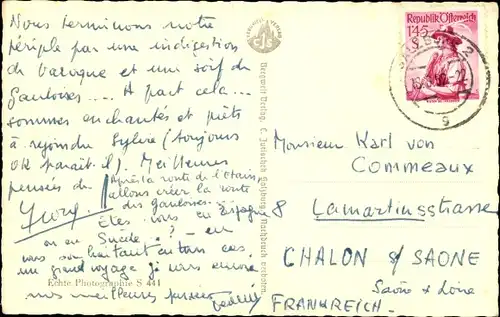 Nous terminons notre
périple par une indigestion
de baroque et une soif de
Gauloises.... A part cela...
sommes enchantés et prêts
à rejoindre Sylvie (toujours
OK paraît-il). Meilleures
pensées de
Après la route de l'étain,
allons créer la route
des gauloises.
Êtes vous en Espagne
ou en Suède ? – en
vous souhaitant en tous cas
un grand voyage je vous envoie
mes meilleures pensées
Echte Photographie S 441
Bergwelt Verlag, C. Jurischek Salzburg. Nachdruck verboten.
CJS
Republik Österreich
1.45 S
SALZBURG 2
g
Monsieur Karl von
COMMEAUX
8 Lamartinsstrasse
CHALON s/ SAONE
Saône & Loire
FRANKREICH.